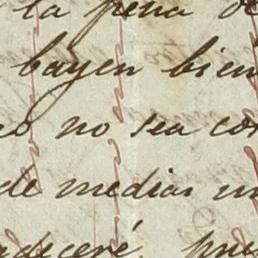 la pena de
bayen bien
no sea co
de medias un
adeceré, pues